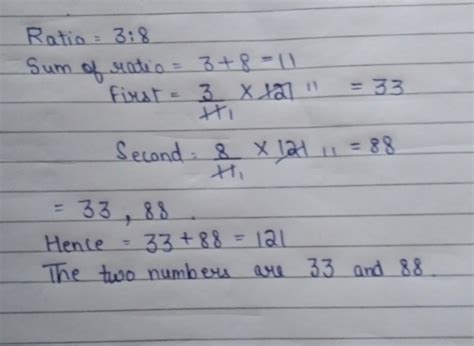 Ratio = 3:8
Sum of ratio = 3+8 = 11
First = 3/11 1 × 121 11 = 33
Second = 8/11 1 × 121 11 = 88
= 33, 88.
Hence = 33+88 = 121
The two numbers are 33 and 88.